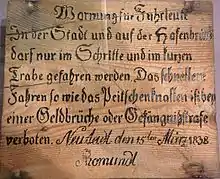 Warnung für Fuhrleute
In der Stadt und auf der Hafenbrücke
darf nur im Schritte und im kurzen
Trabe gefahren werden. Das schnellere
Fahren so wie das Peitschenknallen ist bey
einer Geldbüche oder Gefängnißstrafe
verboten. Neustadt den 15ten März 1838
Romundt